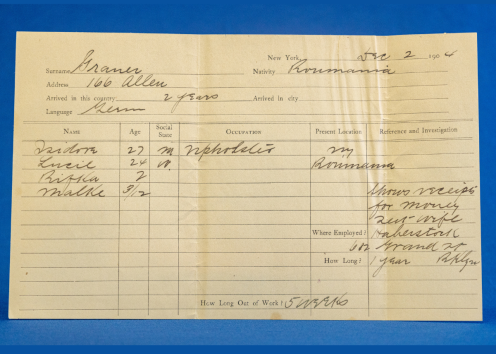 New York, Dec 2 1904
Surname Graner Nativity Roumania
Address 166 Allen
Arrived in this country 2 years Arrived in city
Language Germ
Name Age Social State Occupation Present Location Reference and Investigation
Isidore 27 M Upholster NY
Lucie 24 W. Roumania
Rifka 2
Malke 3/12
Shows receipts
for money
sent wife
Where Employed? Haberstock
602 Grand St
How Long? 1 year Bklyn
How Long Out of Work? 5 weeks